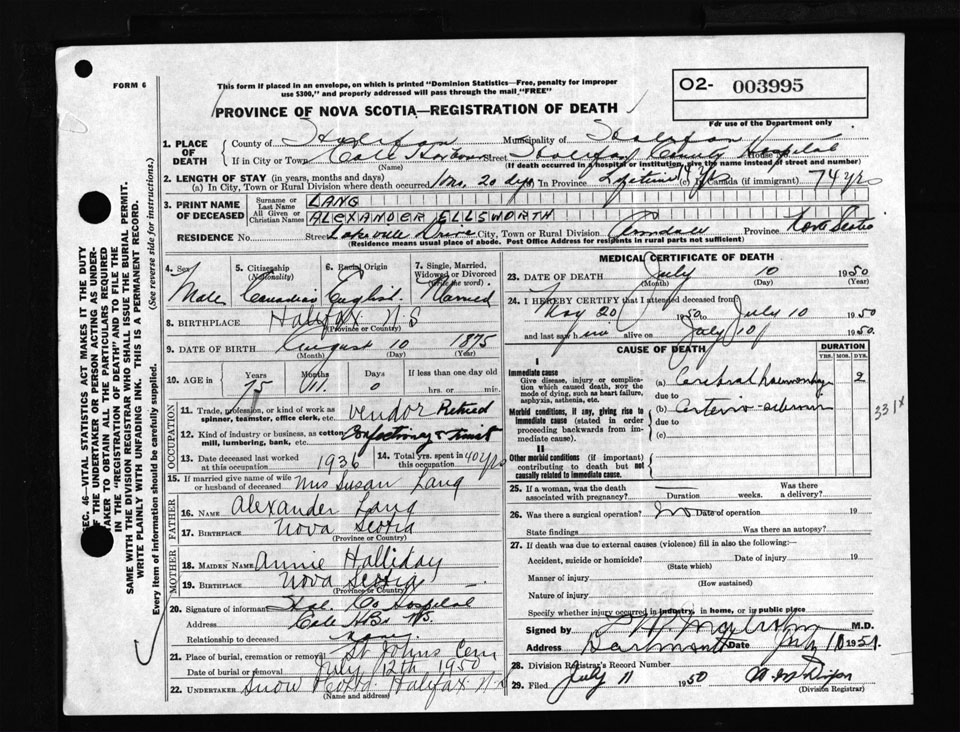 FORM 6
This form if placed in an envelope, on which is printed "Dominion Statistics—Free, penalty for improper
use $300," and properly addressed will pass through the mail "FREE"
O2- 003995
For use of the Department only
PROVINCE OF NOVA SCOTIA—REGISTRATION OF DEATH
1. PLACE OF DEATH
County of Halifax Municipality of Halifax
If in City or Town Cole Harbour Street Halifax County Hospital House No.
(Name) (If death occurred in a hospital or institution, give the name instead of street and number)
2. LENGTH OF STAY (in years, months and days)
(a) In City, Town or Rural Division where death occurred 1 mo. 20 dys In Province Lifetime (c) In Canada (if immigrant) 74 yrs
3. PRINT NAME OF DECEASED
Surname or Last Name LANG
All Given or Christian Names ALEXANDER ELLSWORTH
RESIDENCE No. Street Lakeville Drive City, Town or Rural Division Armdale Province Nova Scotia
(Residence means usual place of abode. Post Office Address for residents in rural parts not sufficient)
4. Sex Male
5. Citizenship (Nationality) Canadian
6. Racial Origin English
7. Single, Married, Widowed or Divorced (Write the word) Married
8. BIRTHPLACE Halifax N.S
(Province or Country)
9. DATE OF BIRTH August 10 1875
(Month) (Day) (Year)
10. AGE in Years Months Days If less than one day
75 0 hrs. or min.
OCCUPATION
11. Trade, profession, or kind of work as spinner, teamster, office clerk, etc. Vendor Retired
12. Kind of industry or business, as cotton mill, lumbering, bank, etc. Confectionery & Fruit
13. Date deceased last worked at this occupation 1936
14. Total yrs. spent in this occupation 40 yrs
15. If married give name of wife or husband of deceased Mrs Susan Lang
FATHER
16. NAME Alexander Lang
17. BIRTHPLACE Nova Scotia
(Province or Country)
MOTHER
18. MAIDEN NAME Annie Halliday
19. BIRTHPLACE Nova Scotia
(Province or Country)
20. Signature of informant Hal. Co Hospital
Address Cole Hbr N.S.
Relationship to deceased none
21. Place of burial, cremation or removal St Johns Cem
Date of burial or removal July 12th 1950
22. UNDERTAKER Snow & Co Ltd. Halifax N.S
(Name and address)
MEDICAL CERTIFICATE OF DEATH
23. DATE OF DEATH July 10 1950
(Month) (Day) (Year)
24. I HEREBY CERTIFY that I attended deceased from
May 20 1950 to July 10 1950
and last saw him alive on July 10 1950.
CAUSE OF DEATH
DURATION
YRS. MOS. DYS.
I
Immediate cause
Give disease, injury or complication which caused death, not the mode of dying, such as heart failure, asphyxia, asthenia, etc.
(a) Cerebral haemorrhage 2
due to
Morbid conditions, if any, giving rise to immediate cause (stated in order proceeding backwards from immediate cause).
(b) Arterio-sclerosis
due to
(c)
331X
II
Other morbid conditions (if important) contributing to death but not causally related to immediate cause.
25. If a woman, was the death associated with pregnancy? Duration weeks. Was there a delivery?
26. Was there a surgical operation? no Date of operation 19
State findings Was there an autopsy?
27. If death was due to external causes (violence) fill in also the following:—
Accident, suicide or homicide? Date of injury 19
(State which)
Manner of injury
(How sustained)
Nature of injury
Specify whether injury occurred in industry, in home, or in public place
Signed by M.D.
Address Dartmouth Date July 10 1950.
28. Division Registrar's Record Number
29. Filed July 11 1950
(Division Registrar)
SEC. 46—VITAL STATISTICS ACT MAKES IT THE DUTY
OF THE UNDERTAKER OR PERSON ACTING AS UNDER-
TAKER TO OBTAIN ALL THE PARTICULARS REQUIRED
IN THE "REGISTRATION OF DEATH" AND TO FILE THE
SAME WITH THE DIVISION REGISTRAR WHO SHALL ISSUE THE BURIAL PERMIT.
WRITE PLAINLY WITH UNFADING INK. THIS IS A PERMANENT RECORD.
Every item of information should be carefully supplied. (See reverse side for instructions.)